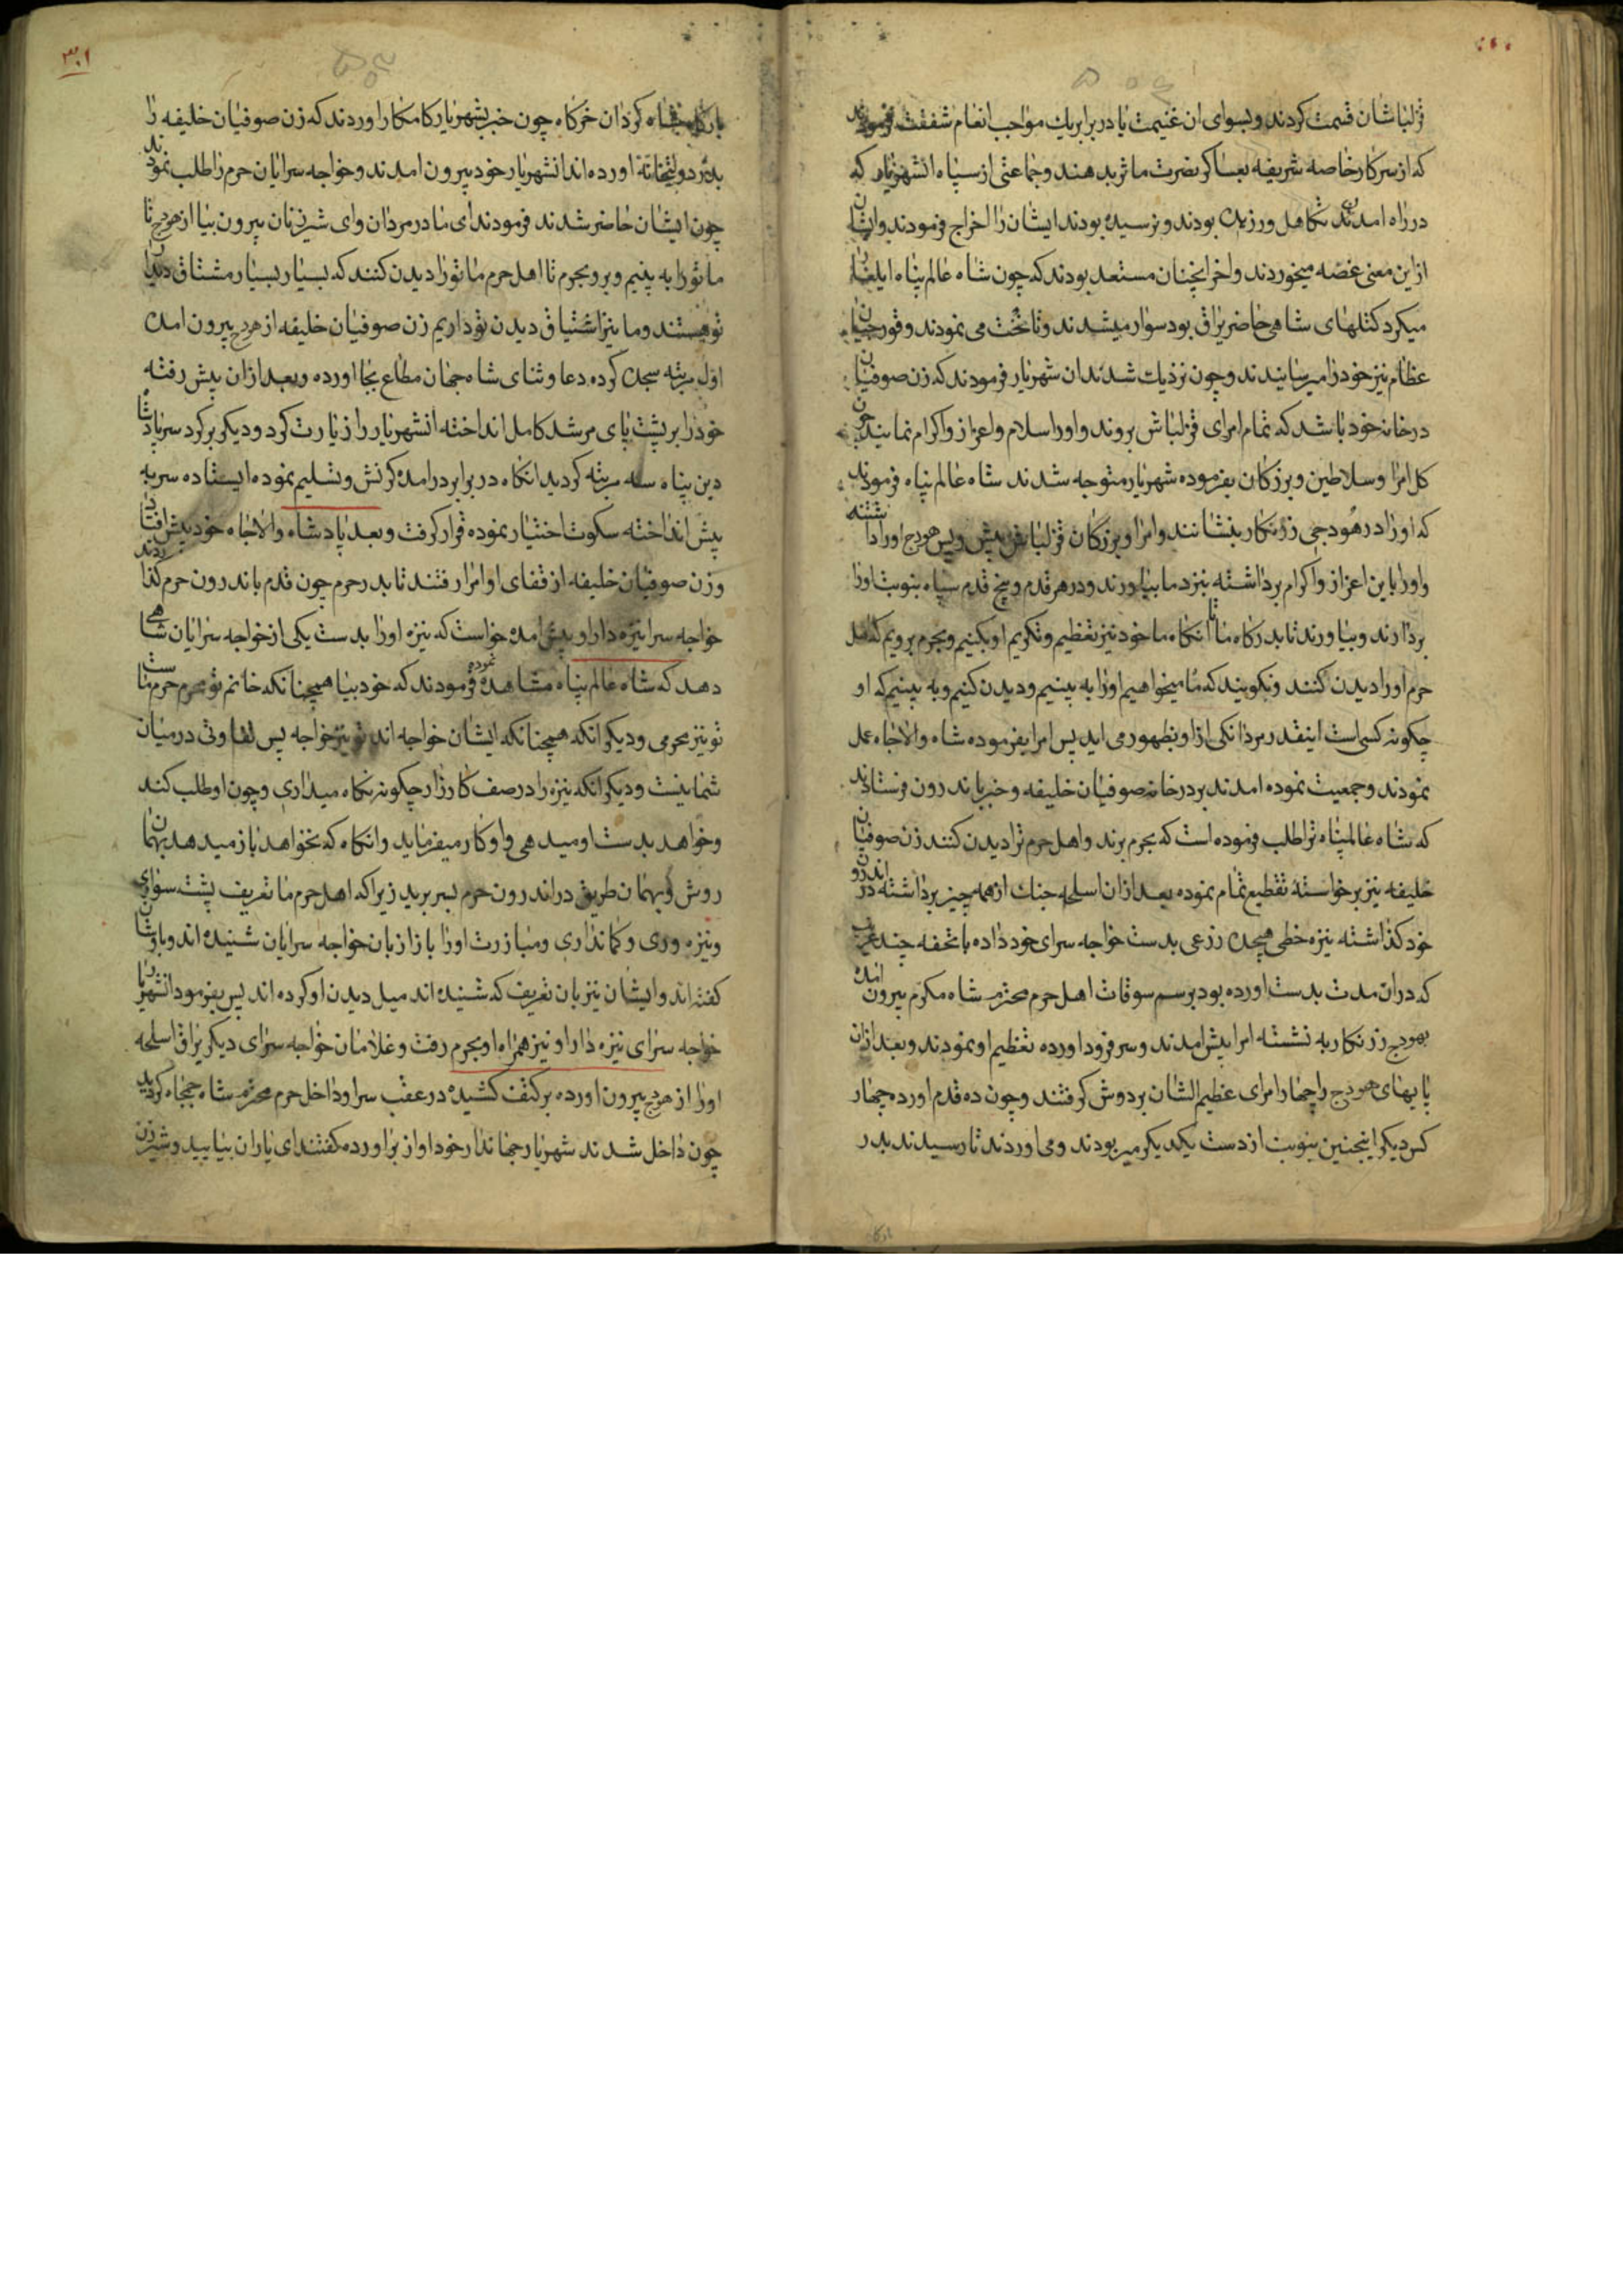 قزلباشان قسمت کردند و بسوای ان غنیمت یا در برابر یک مواجب انعام شفقت فرمودند
که از سرکار خاصه شریفه بعساکر نصرت ماثر بدهند و جماعتی از سپاه انشهریار که
در راه امدن تکاهل ورزیده بودند و نرسیده بودند ایشان را اخراج فرمودند و ایشان
از این معنی غصه میخوردند و اخر انچنان مستعد بودند که چون شاه عالم پناه ایلغار
میکرد کتلهای شاهی حاضر یراق بود سوار میشدند و تاخت می نمودند و قورچیان
عظام نیز خود را میرسانیدند و چون نزدیک شدند ان شهریار فرمودند که زن صوفیان
در خانه خود باشد که تمام امرای قزلباش بروند و او را سلام و اعزاز و اکرام نمایند چون
کل امرا و سلاطین و بزرکان بفرموده شهریار متوجه شدند شاه عالم پناه فرمودند
که او را در هودجی زرنکار بنشانند و امرا و بزرکان قزلباش پیش و پس هودج او را داشته
و او را باین اعزاز و اکرام برداشته بنزد ما بیاورند و در هر قدم و پنج قدم سپاه بنوبت او را
بردارند و بیاورند تا بدرکاه ما تا انکاه ما خود نیز تعظیم و تکریم او بکنیم و بحرم برویم که اهل
حرم او را دیدن کنند و نکویند که ما میخواهیم او را به بینیم و دیدن کنیم و به بینیم که او
چکونه کسی است اینقدر مردانکی از او بظهور می اید پس امرا بفرموده شاه والاجاه عمل
نمودند و جمعیت نموده امدند بر در خانه صوفیان خلیفه و خبر باندرون فرستادند
که شاه عالمپناه ترا طلب فرموده است که بحرم برند و اهل حرم ترا دیدن کنند زن صوفیان
خلیفه نیز برخواسته تقطیع تمام نموده بعد از ان اسلحه جنک از همه چیز برداشته در اندرون
خود کذاشته نیزه خطی هیجده زرعی بدست خواجه سرای خود داده با تحفه چند غریب
که در ان مدت بدست اورده بود برسم سوقات اهل حرم محترم شاه مکرم بیرون امده
بهودج زرنکار به نشسته امرا پیش امدند و سر فرود اورده تعظیم او نمودند و بعد از ان
پایهای هودج را چهار امرای عظیم الشان بر دوش کرفتند و چون ده قدم اورده چهار
کس دیکر اینچنین بنوبت از دست یکدیکر میربودند و می اوردند تا رسیدند بدر
۳۰۱
بارکاه شاه کردان خرکاه چون خبر بشهریار کامکار اوردند که زن صوفیان خلیفه را
بدر دولتخانه اورده اند انشهریار خود بیرون امدند و خواجه سرایان حرم را طلب نمودند
چون ایشان حاضر شدند فرمودند ای مادر مردان و ای شیر زنان بیرون بیا از هودج تا
ما تو را به بینیم و برو بحرم تا اهل حرم ما تو را دیدن کنند که بسیار بسیار مشتاق دیدن
تو هستند و ما نیز اشتیاق دیدن تو داریم زن صوفیان خلیفه از هودج بیرون امده
اول مرتبه سجده کرده دعا و ثنای شاه جهان مطاع بجا اورده و بعد از ان پیش رفته
خود را بر پشت پای مرشد کامل انداخته انشهریار را زیارت کرد و دیکر بر کرد سر پادشاه
دین پناه سه مرتبه کردید انکاه در برابر درامده کرنش و تسلیم نموده ایستاده سر به
پیش انداخته سکوت اختیار نموده قرار کرفت و بعد پادشاه والاجاه خود پیش افتاد
و زن صوفیان خلیفه از قفای او امرا رفتند تا بدر حرم چون قدم باندرون حرم کذاردند
خواجه سرا نیزه دار او پیش امده خواست که نیزه او را بدست یکی از خواجه سرایان شاهی
دهد که شاه عالم پناه مشاهده نموده فرمودند که خود بیا همچنانکه خانم تو محرم حرم ماست
تو نیز محرمی و دیکر انکه همچنانکه ایشان خواجه اند تو نیز خواجه پس تفاوتی در میان
شما نیست و دیکر انکه نیزه را در صف کارزار چکونه نکاه میداری و چون او طلب کند
و خواهد بدست او میدهی و او کار میفرماید و انکاه که نخواهد باز میدهد بهمان
روش و بهمان طریق در اندرون حرم بسر برید زیرا که اهل حرم ما تعریف پشت سواری
و نیزه وری و کمانداری و مبارزت او را باز از زبان خواجه سرایان شنیده اند و باوشان
کفته اند و ایشان نیز بان تعریف که شنیده اند میل دیدن او کرده اند پس بفرمود انشهریار
خواجه سرای نیزه دار او نیز همراه او بحرم رفت و غلامان خواجه سرای دیکر یراق اسلحه
او را از هودج بیرون اورده بر کتف کشیده در عقب سر او داخل حرم محترم شاه جمجاه کردید
چون داخل شدند شهریار جهاندار خود اواز براورده کفتند ای یاران بیایید و شیر زن